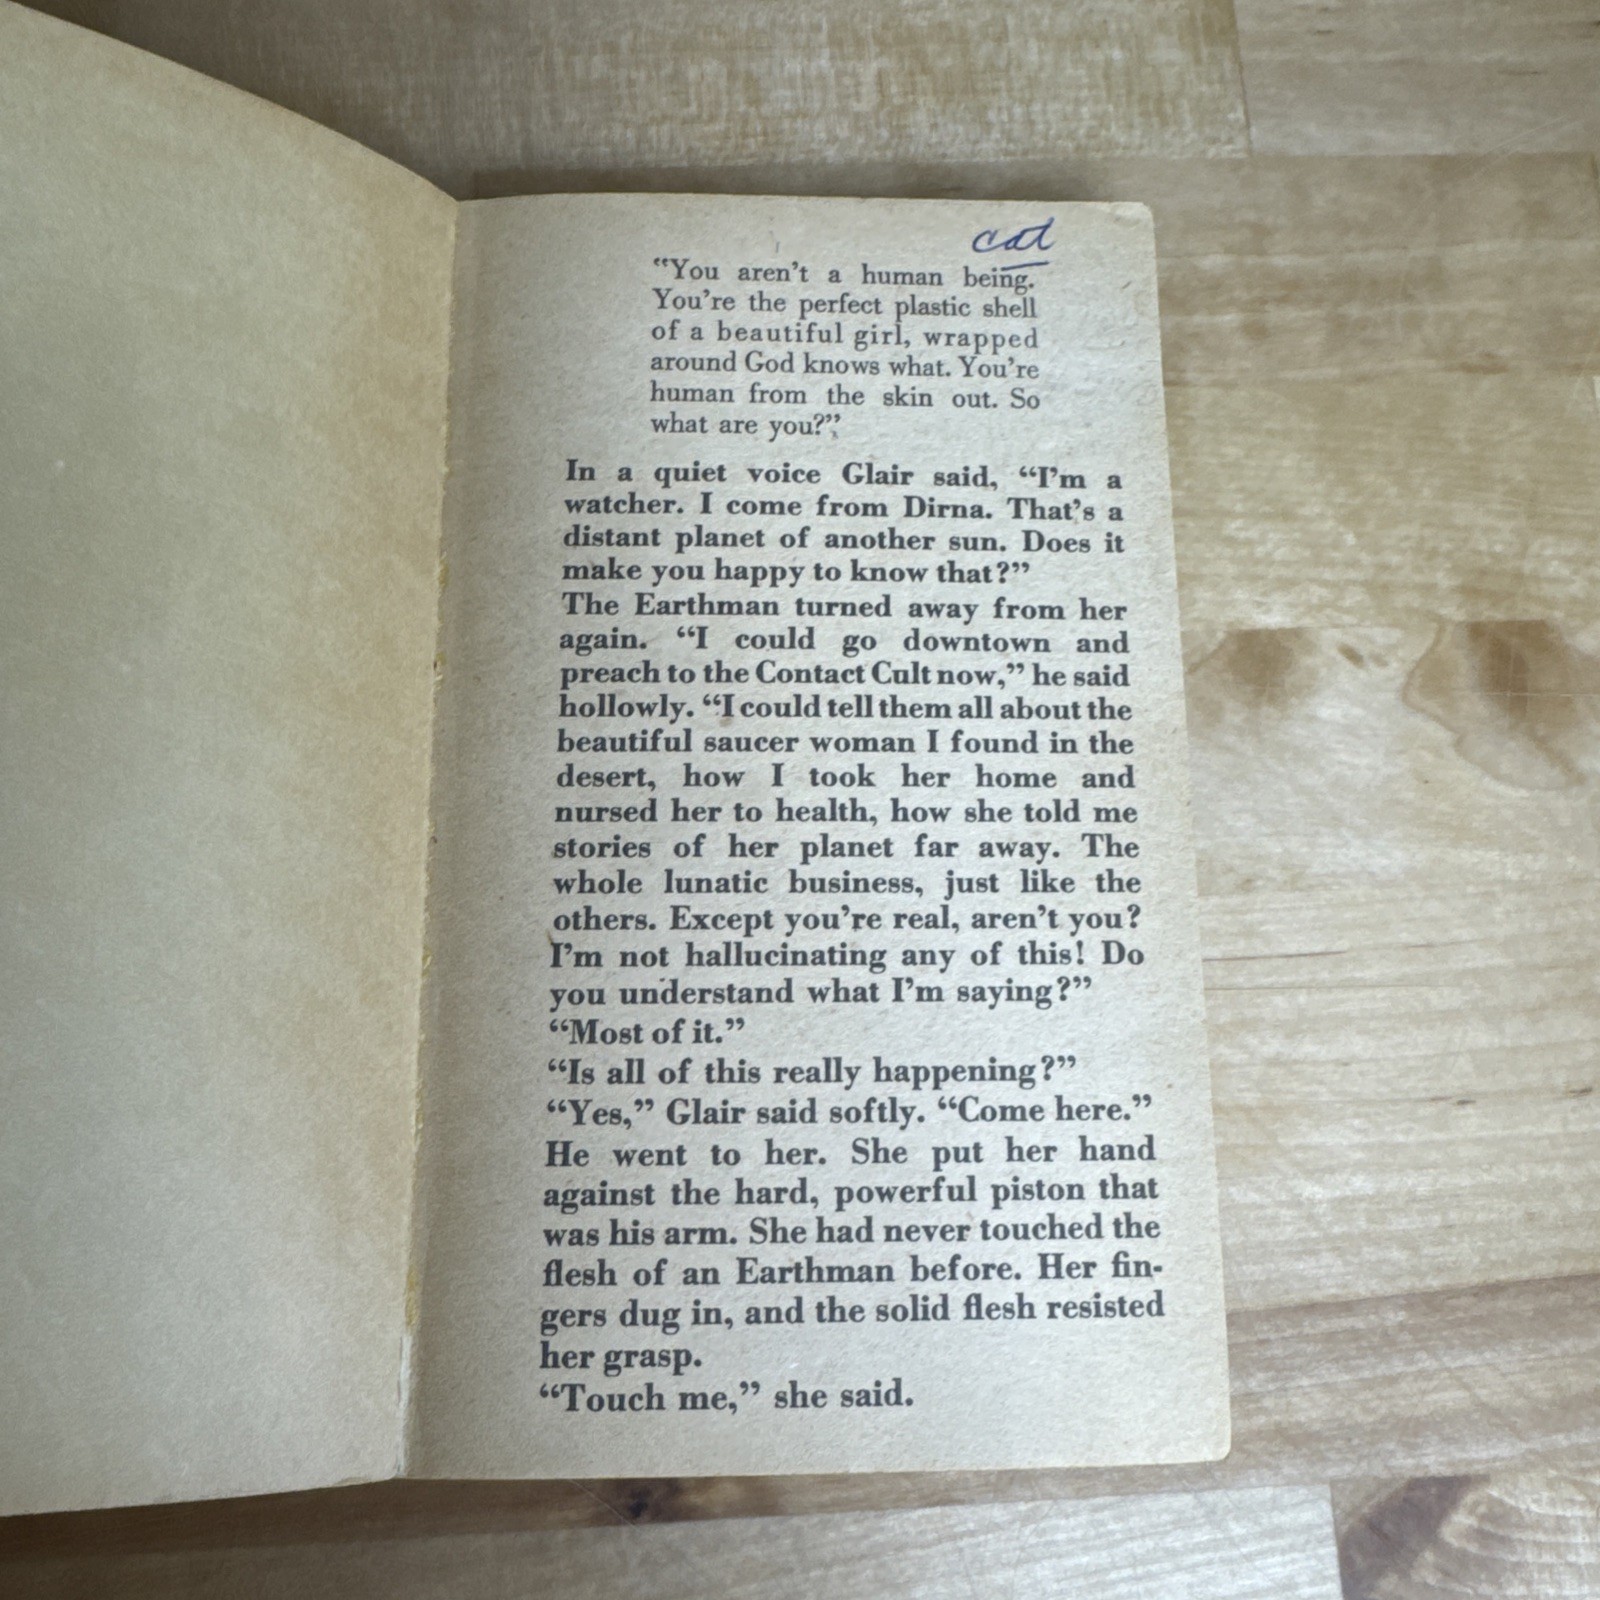 cat
“You aren’t a human being.
You’re the perfect plastic shell
of a beautiful girl, wrapped
around God knows what. You’re
human from the skin out. So
what are you?”
In a quiet voice Glair said, “I’m a
watcher. I come from Dirna. That’s a
distant planet of another sun. Does it
make you happy to know that?”
The Earthman turned away from her
again. “I could go downtown and
preach to the Contact Cult now,” he said
hollowly. “I could tell them all about the
beautiful saucer woman I found in the
desert, how I took her home and
nursed her to health, how she told me
stories of her planet far away. The
whole lunatic business, just like the
others. Except you’re real, aren’t you?
I’m not hallucinating any of this! Do
you understand what I’m saying?”
“Most of it.”
“Is all of this really happening?”
“Yes,” Glair said softly. “Come here.”
He went to her. She put her hand
against the hard, powerful piston that
was his arm. She had never touched the
flesh of an Earthman before. Her fin-
gers dug in, and the solid flesh resisted
her grasp.
“Touch me,” she said.